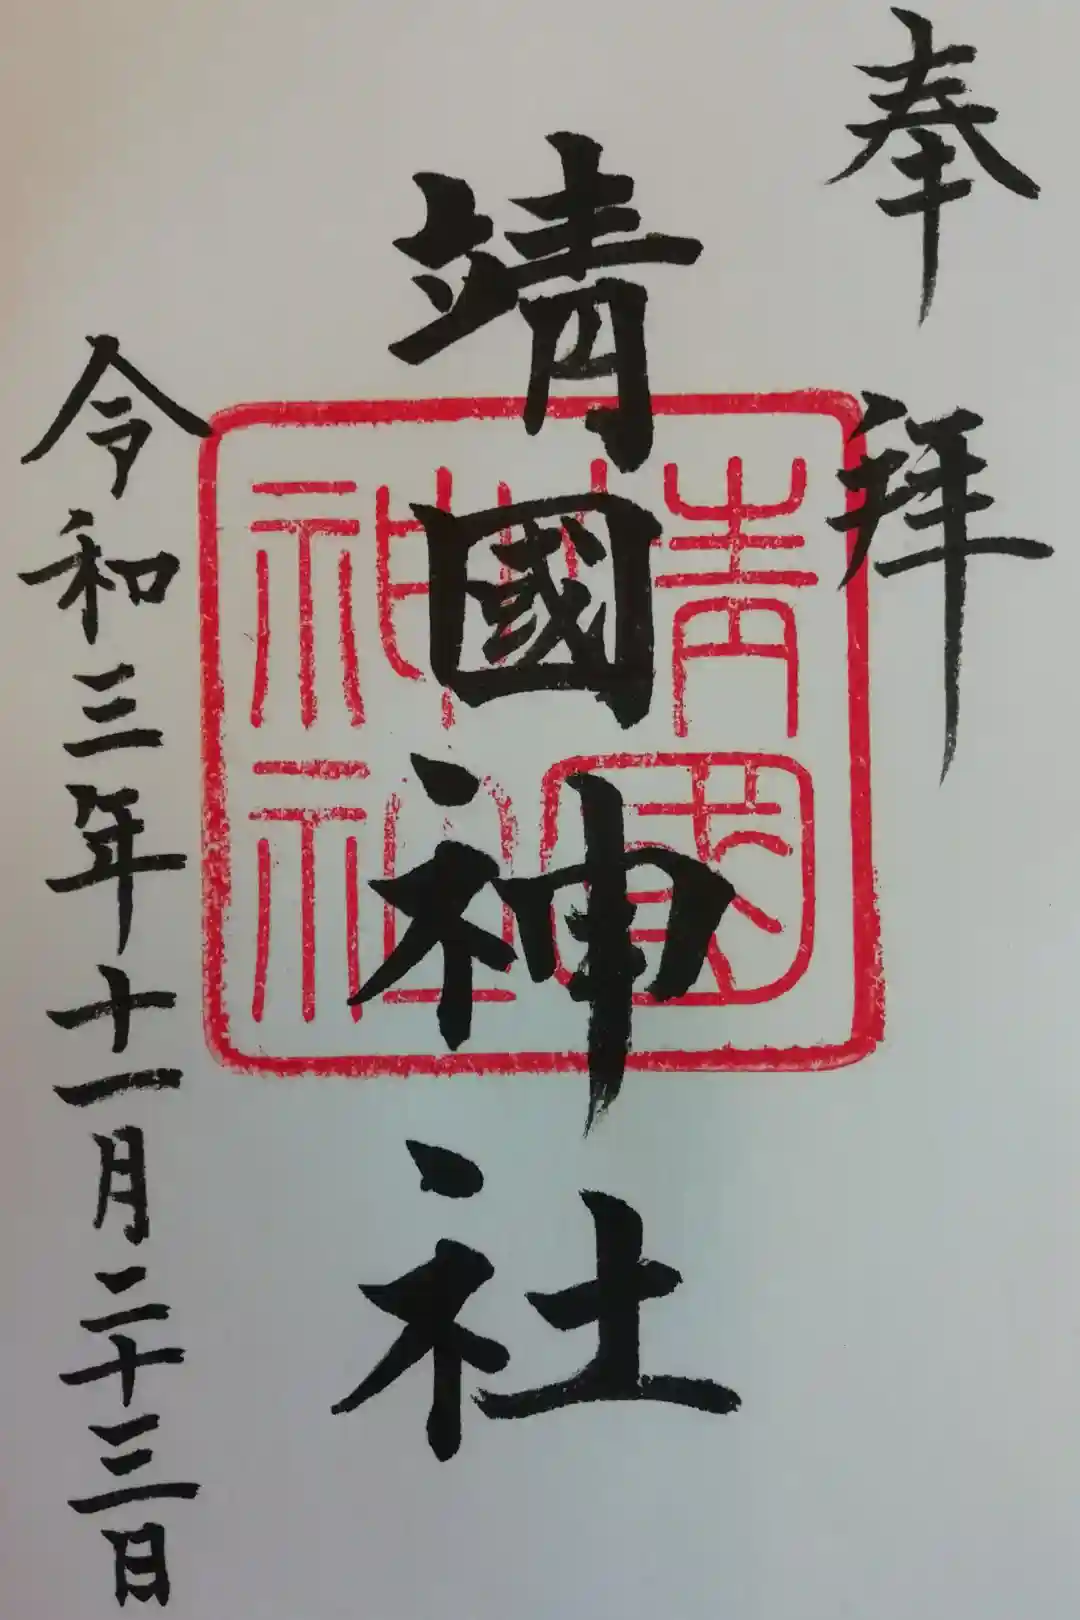 奉拝
靖國神社
靖國神社
令和三年十一月二十三日